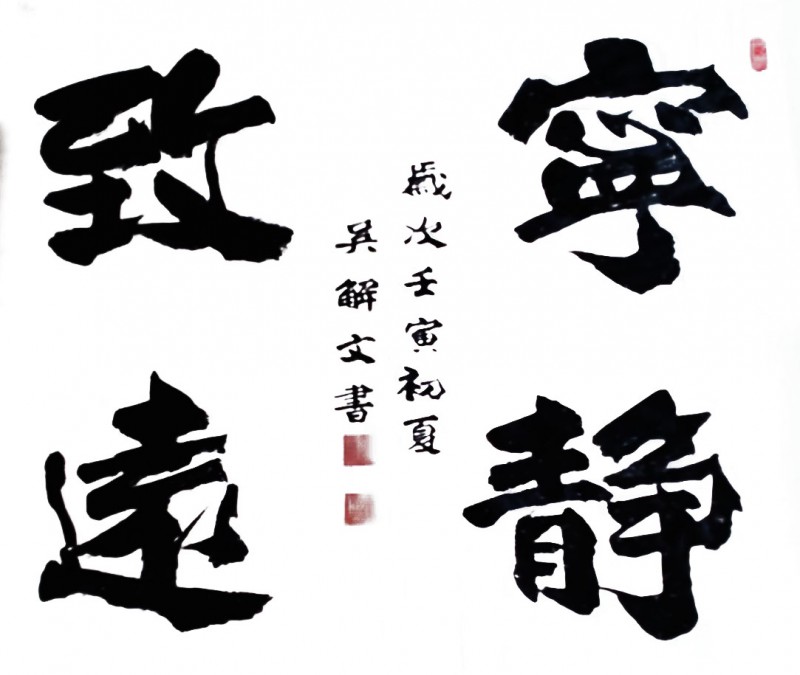 寧靜
致遠
歲次壬寅初夏
吴解文書